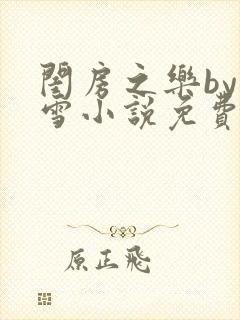 閨房之樂by
雪小說免費
原正飛